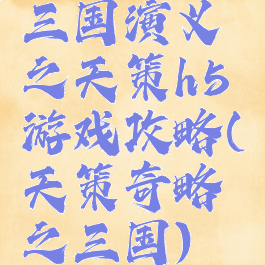 三国演义
之天策h5
游戏攻略(
天策奇略
之三国)